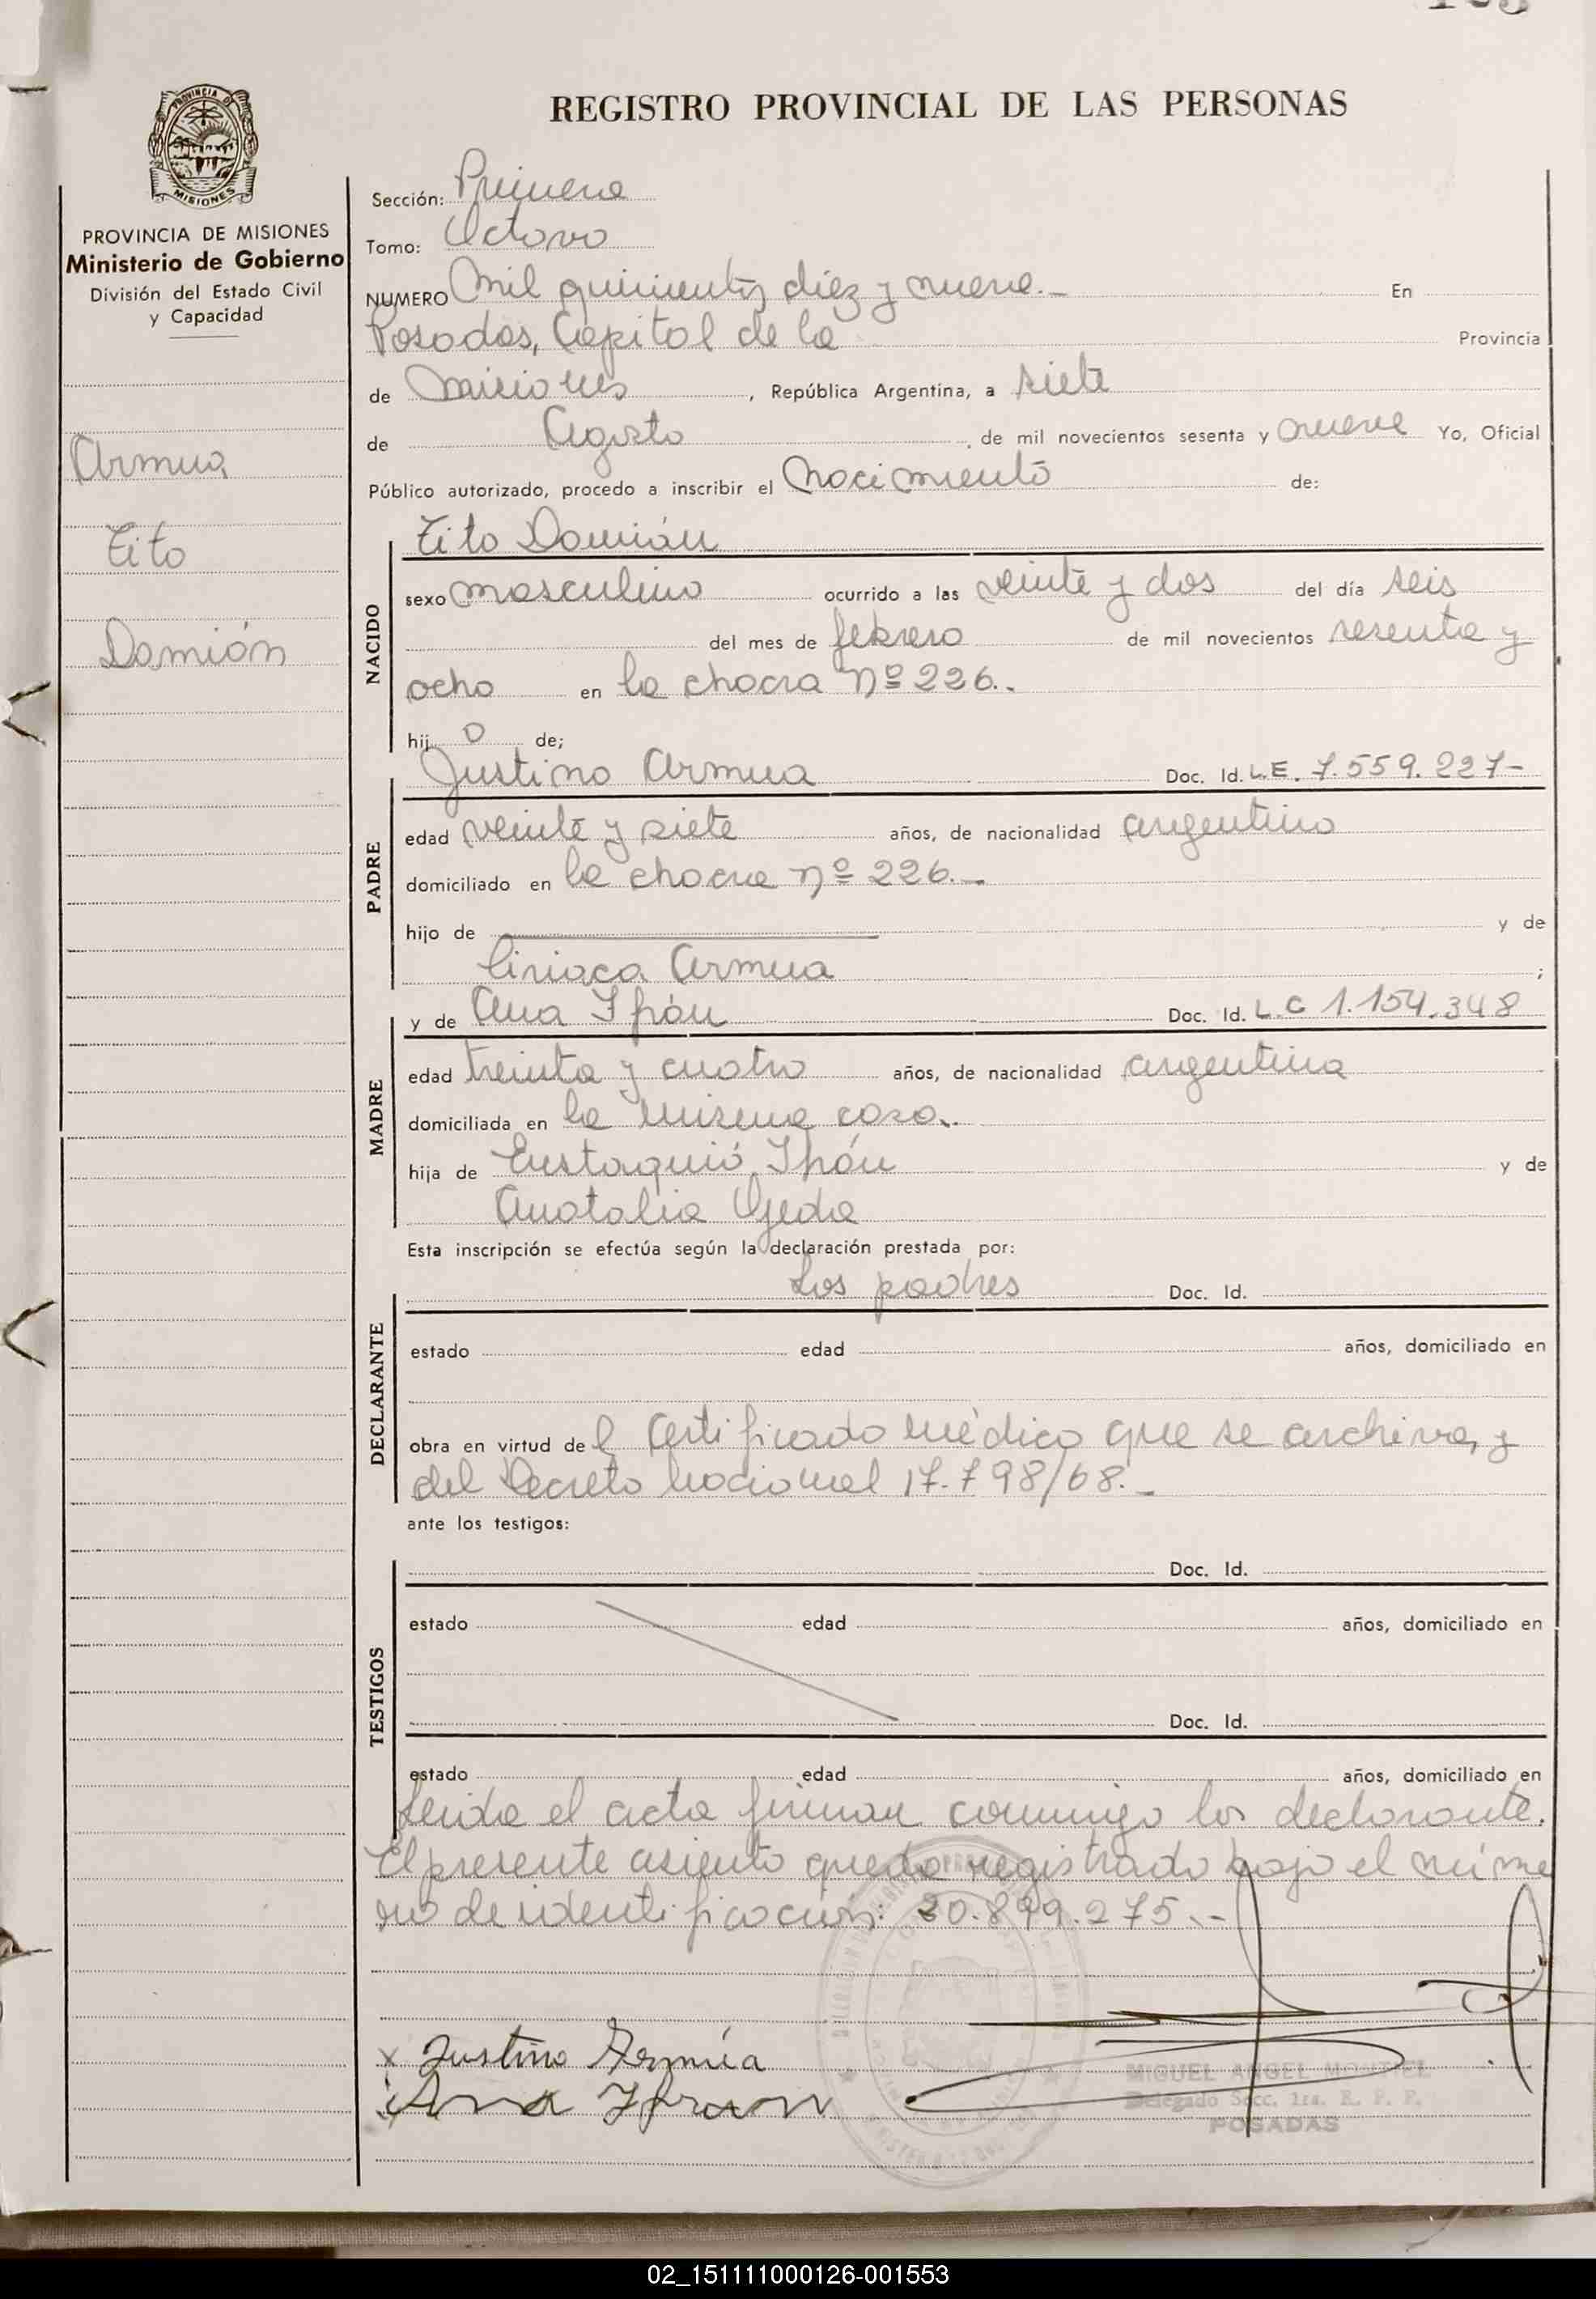 REGISTRO PROVINCIAL DE LAS PERSONAS
PROVINCIA DE MISIONES
Ministerio de Gobierno
División del Estado Civil
y Capacidad
Armua
Tito
Damián
Sección: Primera
Tomo: Octavo
NUMERO Mil quinientos diez y nueve.- En
Posadas, Capital de la Provincia
de Misiones, República Argentina, a siete
de Agosto, de mil novecientos sesenta y nueve Yo, Oficial
Público autorizado, procedo a inscribir el nacimiento de:
NACIDO
Tito Damián
sexo masculino ocurrido a las veinte y dos del día seis
del mes de febrero de mil novecientos sesenta y
ocho en la chacra Nº 226.-
hijo de;
PADRE
Justino Armua Doc. Id. L.E. 7.559.227-
edad veinte y siete años, de nacionalidad argentino
domiciliado en la chacra nº 226.-
hijo de y de
Ciriaca Armua ;
MADRE
y de Ana Ifrán Doc. Id. L.C 1.154.348
edad treinta y cuatro años, de nacionalidad argentina
domiciliada en la misma casa.
hija de Eustaquio Ifrán y de
Anatalia Ojeda
Esta inscripción se efectúa según la declaración prestada por:
DECLARANTE
Los padres Doc. Id.
estado edad años, domiciliado en
obra en virtud del Certificado médico que se archiva, y
del Decreto Nacional 17.798/68.-
ante los testigos:
TESTIGOS
Doc. Id.
estado edad años, domiciliado en
Doc. Id.
estado edad años, domiciliado en
Leida el acta firman conmigo los declarante.
El presente asiento queda registrado bajo el núme
ro de identificación: 20.899.275.-
x Justino Armúa
Ana Ifran
MIGUEL ANGEL MONTIEL
Delegado Secc. 1ra. R. P. P.
POSADAS
02_151111000126-001553